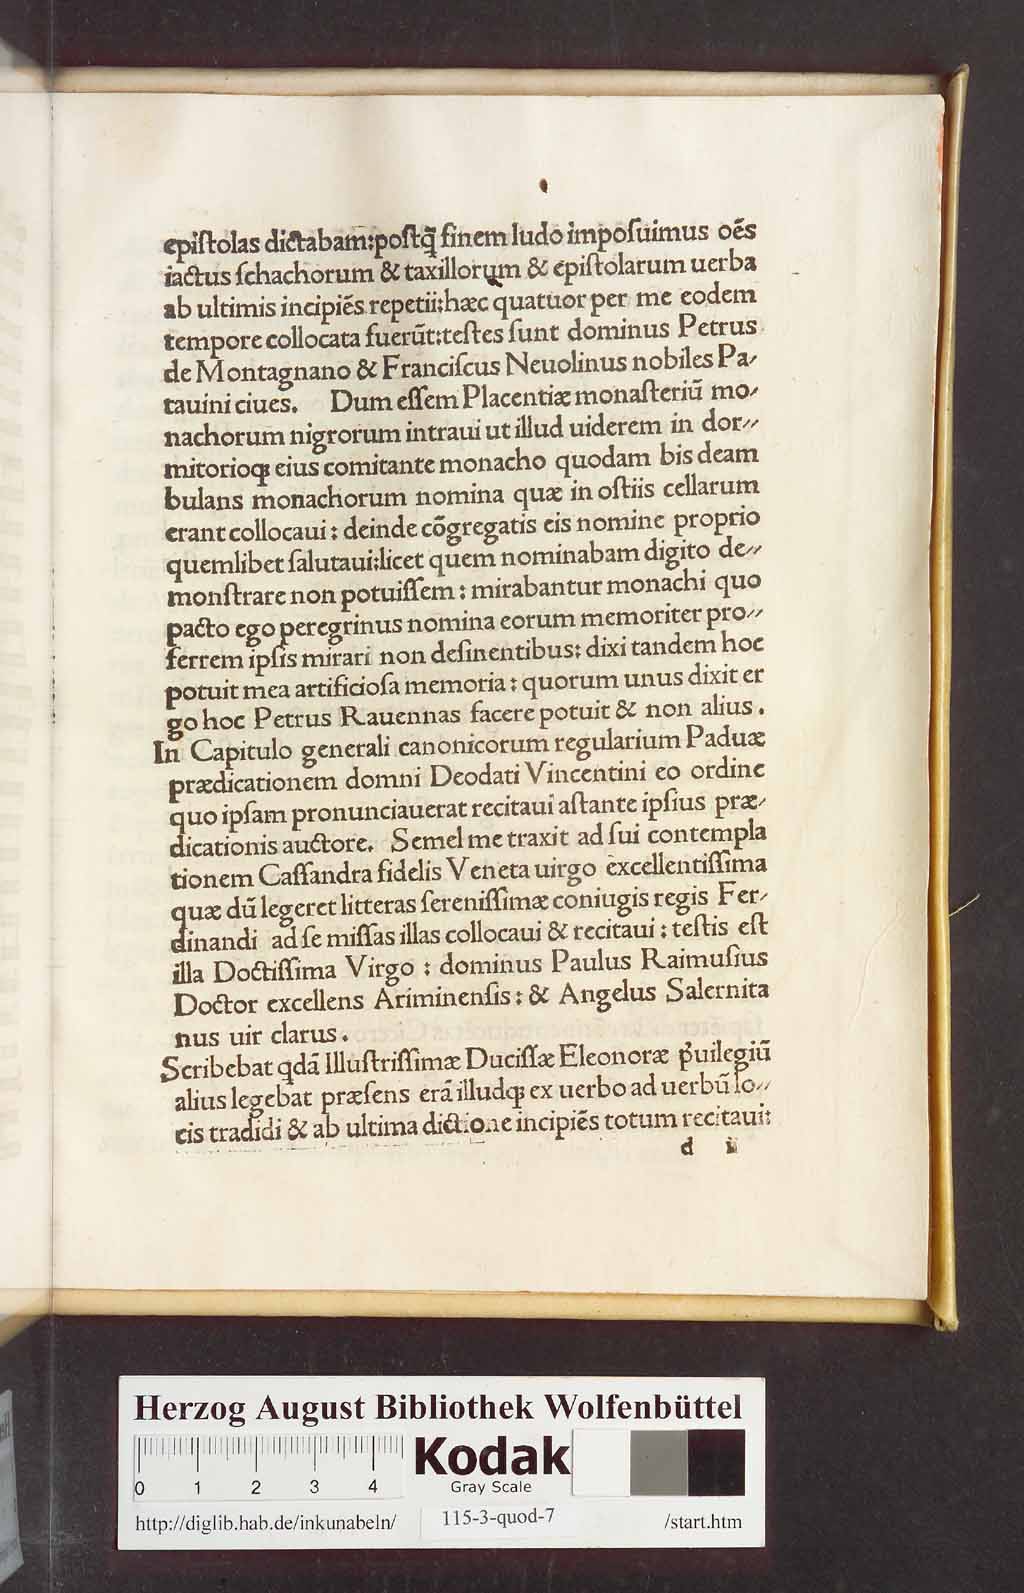 epiſtolas dictabam:poſtq̃ finem ludo impoſuimus oẽs
iactus ſchachorum & taxillorum & epiſtolarum uerba
ab ultimis incipiẽs repetii:hæc quatuor per me eodem
tempore collocata fuerũt:teſtes ſunt dominus Petrus
de Montagnano & Franciſcus Neuolinus nobiles Pa⸗
tauini ciues. Dum eſſem Placentiæ monaſteriũ mo⸗
nachorum nigrorum intraui ut illud uiderem in dor⸗
mitorioqꝫ eius comitante monacho quodam bis deam
bulans monachorum nomina quæ in oſtiis cellarum
erant collocaui : deinde cõgregatis eis nomine proprio
quemlibet ſalutaui:licet quem nominabam digito de⸗
monſtrare non potuiſſem : mirabantur monachi quo
pacto ego peregrinus nomina eorum memoriter pro⸗
ferrem ipſis mirari non deſinentibus: dixi tandem hoc
potuit mea artificioſa memoria : quorum unus dixit er
go hoc Petrus Rauennas facere potuit & non alius .
In Capitulo generali canonicorum regularium Paduæ
prædicationem domni Deodati Vincentini eo ordine
quo ipſam pronunciauerat recitaui aſtante ipſius præ⸗
dicationis auctore. Semel me traxit ad ſui contempla
tionem Caſſandra fidelis Veneta uirgo excellentiſſima
quæ dũ legeret litteras ſereniſſimæ coniugis regis Fer⸗
dinandi ad ſe miſſas illas collocaui & recitaui : teſtis eſt
illa Doctiſſima Virgo : dominus Paulus Raimuſius
Doctor excellens Ariminenſis : & Angelus Salernita
nus uir clarus .
Scribebat qdã Illuſtriſſimæ Duciſſæ Eleonoræ p̃uilegiũ
alius legebat præſens erã illudqꝫ ex uerbo ad uerbũ lo⸗
cis tradidi & ab ultima dictione incipiẽs totum recitaui:
d ii
Herzog August Bibliothek Wolfenbüttel
0 1 2 3 4
Kodak
Gray Scale
http://diglib.hab.de/inkunabeln/ 115-3-quod-7 /start.htm